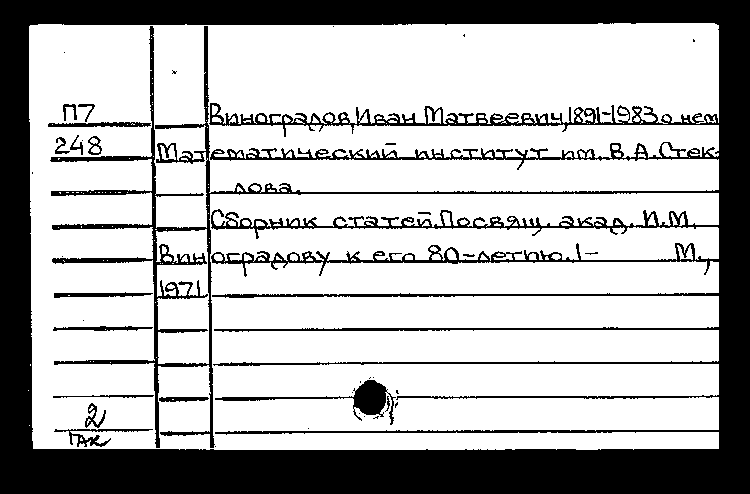 П7 Виноградов, Иван Матвеевич, 1891-1983 о нем
248 Математический институт им. В.А. Стек-
лова.
Сборник статей. Посвящ. акад. И.М.
Виноградову к его 80-летию. 1- М.,
1971
2
ГАК